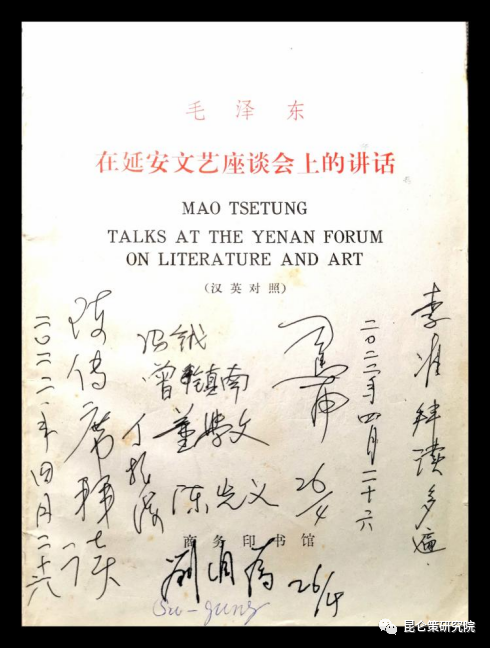 毛泽东
在延安文艺座谈会上的讲话
MAO TSETUNG
TALKS AT THE YENAN FORUM
ON LITERATURE AND ART
(汉英对照)
李准拜读多遍
二〇二二年四月二十六
26/4
曾镇南
董学文
陈先义
陈传席拜读
二〇二二年四月二十六
26/4
商务印书馆
昆仑策研究院